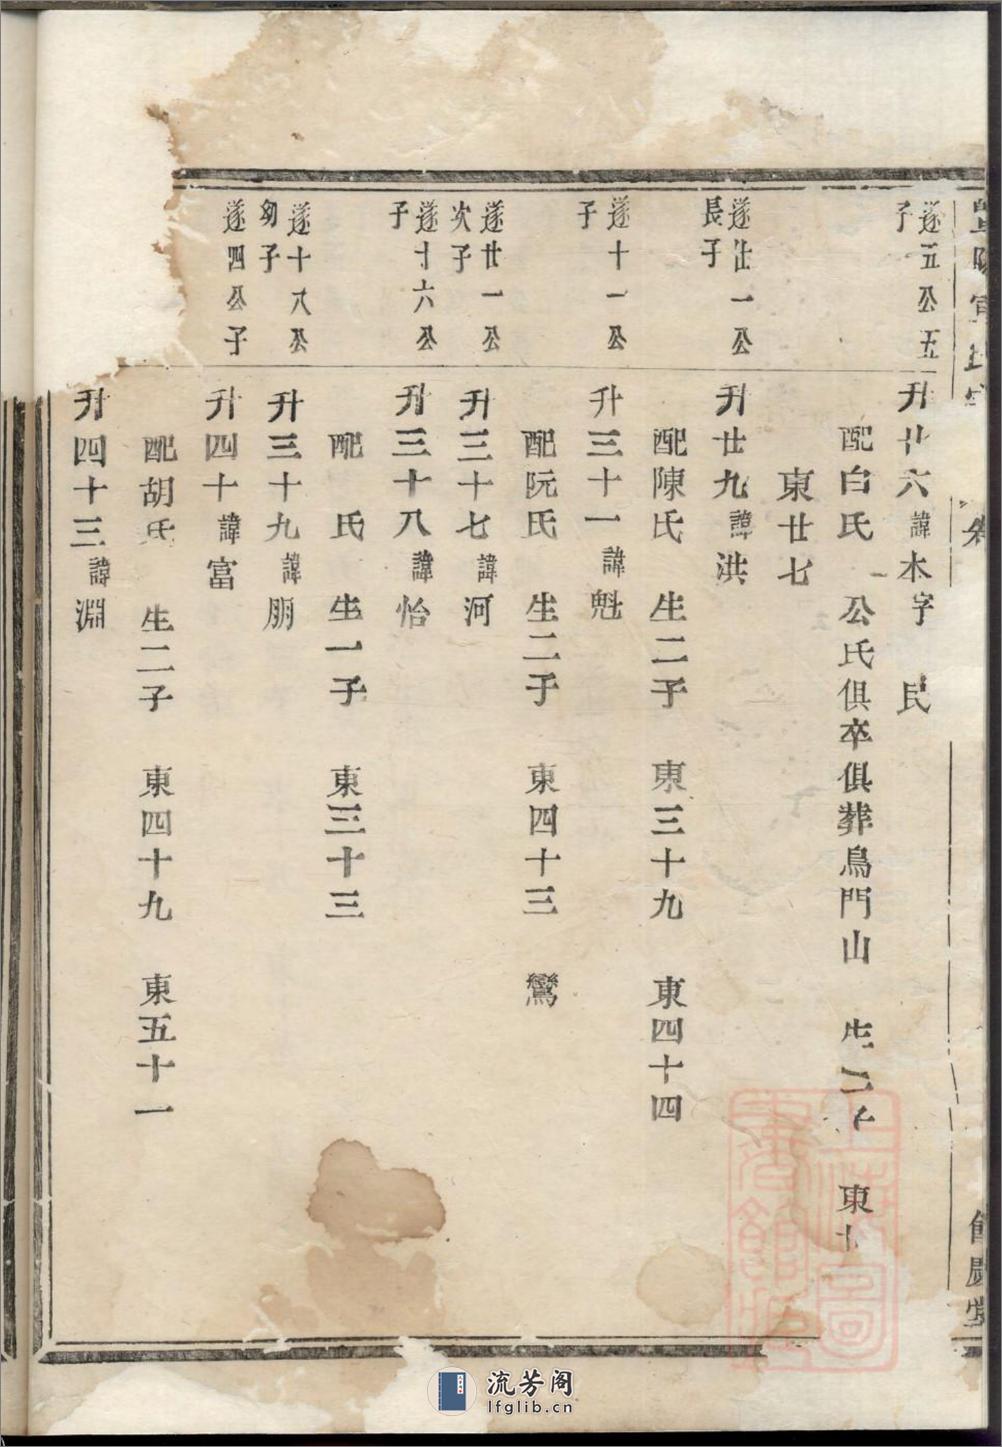 遂五公五
子
升廿六諱木字 民
配白氏 公氏俱卒俱葬烏門山 生二子 東十
東廿七
遂廿一公
長子
升廿九諱洪
配陳氏 生二子 東三十九 東四十四
遂十一公
子
升三十一諱魁
配阮氏 生二子 東四十三 鸞
遂廿一公
次子
升三十七諱河
遂十六公
子
升三十八諱怡
配 氏 生一子 東三十三
遂十八公
幼子
升三十九諱朋
遂四公子
升四十諱富
配胡氏 生二子 東四十九 東五十一
升四十三諱淵
流芳阁
lfglib.cn